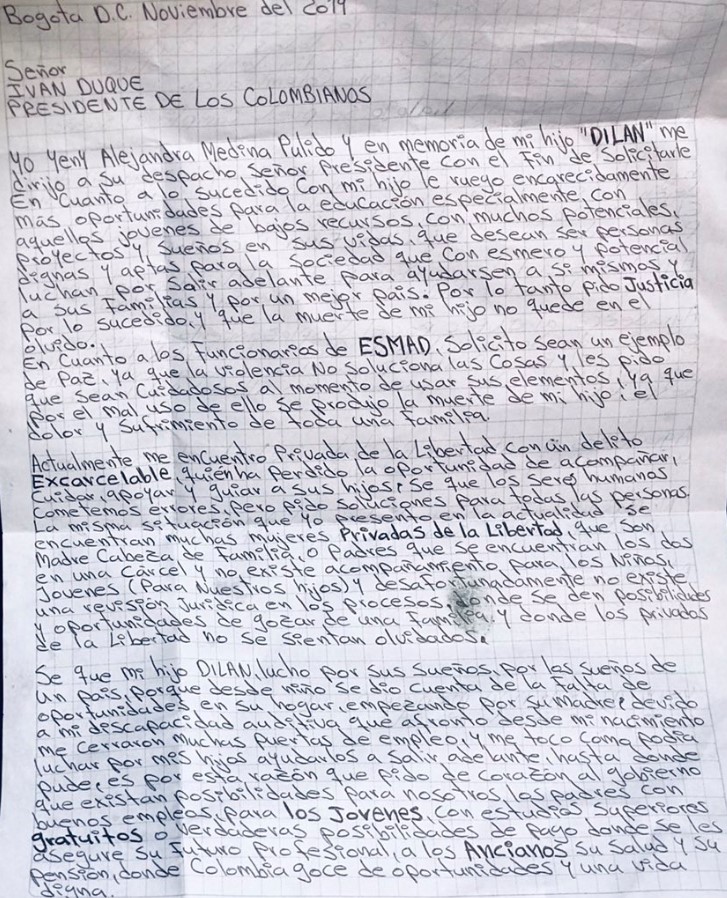 Bogota D.C. Noviembre del 2019
Señor
IVAN DUQUE
PRESIDENTE DE LOS COLOMBIANOS
Yo Yeny Alejandra Medina Pulido y en memoria de mi hijo "DILAN" me
dirijo a su despacho Señor Presidente con el fin de Solicitarle
En Cuanto a lo sucedido con mi hijo le ruego encarecidamente
más oportunidades para la educación especialmente, con
aquellos jovenes de bajos recursos, con muchos potenciales,
proyectos y sueños en sus vidas, que desean ser personas
dignas y aptas para la sociedad que con esmero y potencial
luchan por salir adelante para ayudarsen a si mismas y
a sus familias y por un mejor pais. Por lo tanto pido Justicia
por lo sucedido, y que la muerte de mi hijo no quede en el
olvido.
En Cuanto a los funcionarios de ESMAD, Solicito Sean un ejemplo
de Paz, ya que la violencia No soluciona las Cosas y les pido
que sean Cuidadosos al momento de usar sus elementos, ya que
por el mal uso de ello se produjo la muerte de mi hijo; el
dolor y Sufrimiento de toda una familia.
Actualmente me encuentro Privada de la Libertad con un delito
Excarcelable, quien ha perdido la oportunidad de acompañar,
Cuidar, apoyar y guiar a sus hijos, se que los seres humanos
Cometemos errores, pero pido soluciones para todas las personas.
La misma situación que yo presento en la actualidad se
encuentran muchas mujeres Privadas de la Libertad, que son
Madre Cabeza de familia, o padres que se encuentran los dos
en una Cárcel y no existe acompañamiento para los Niños,
Jovenes (Para Nuestros hijos) y desafortunadamente no existe
una revisión Juridica en los procesos, donde se den posibilidades
y oportunidades de gozar de una familia, y donde los privados
de la Libertad no se sientan olvidados.
Se que mi hijo DILAN, lucho por sus sueños, por los sueños de
un pais, porque desde niño se dio cuenta de la falta de
oportunidades en su hogar, empezando por su madre, devido
a mi descapacidad auditiva que afronto desde mi nacimiento
me cerraron muchas puertas de empleo, y me toco como podia
luchar por mis hijos ayudarlos a salir adelante, hasta donde
pude, es por esta razón que pido de corazón al gobierno
que existan posibilidades para nosotros los padres con
buenos empleos, para los Jovenes, con estudios Superiores
gratuitos o verdaderas posibilidades de pago donde se les
asegure su futuro profesional, a los Ancianos su Salud y su
pensión, donde Colombia goce de oportunidades y una vida
digna.